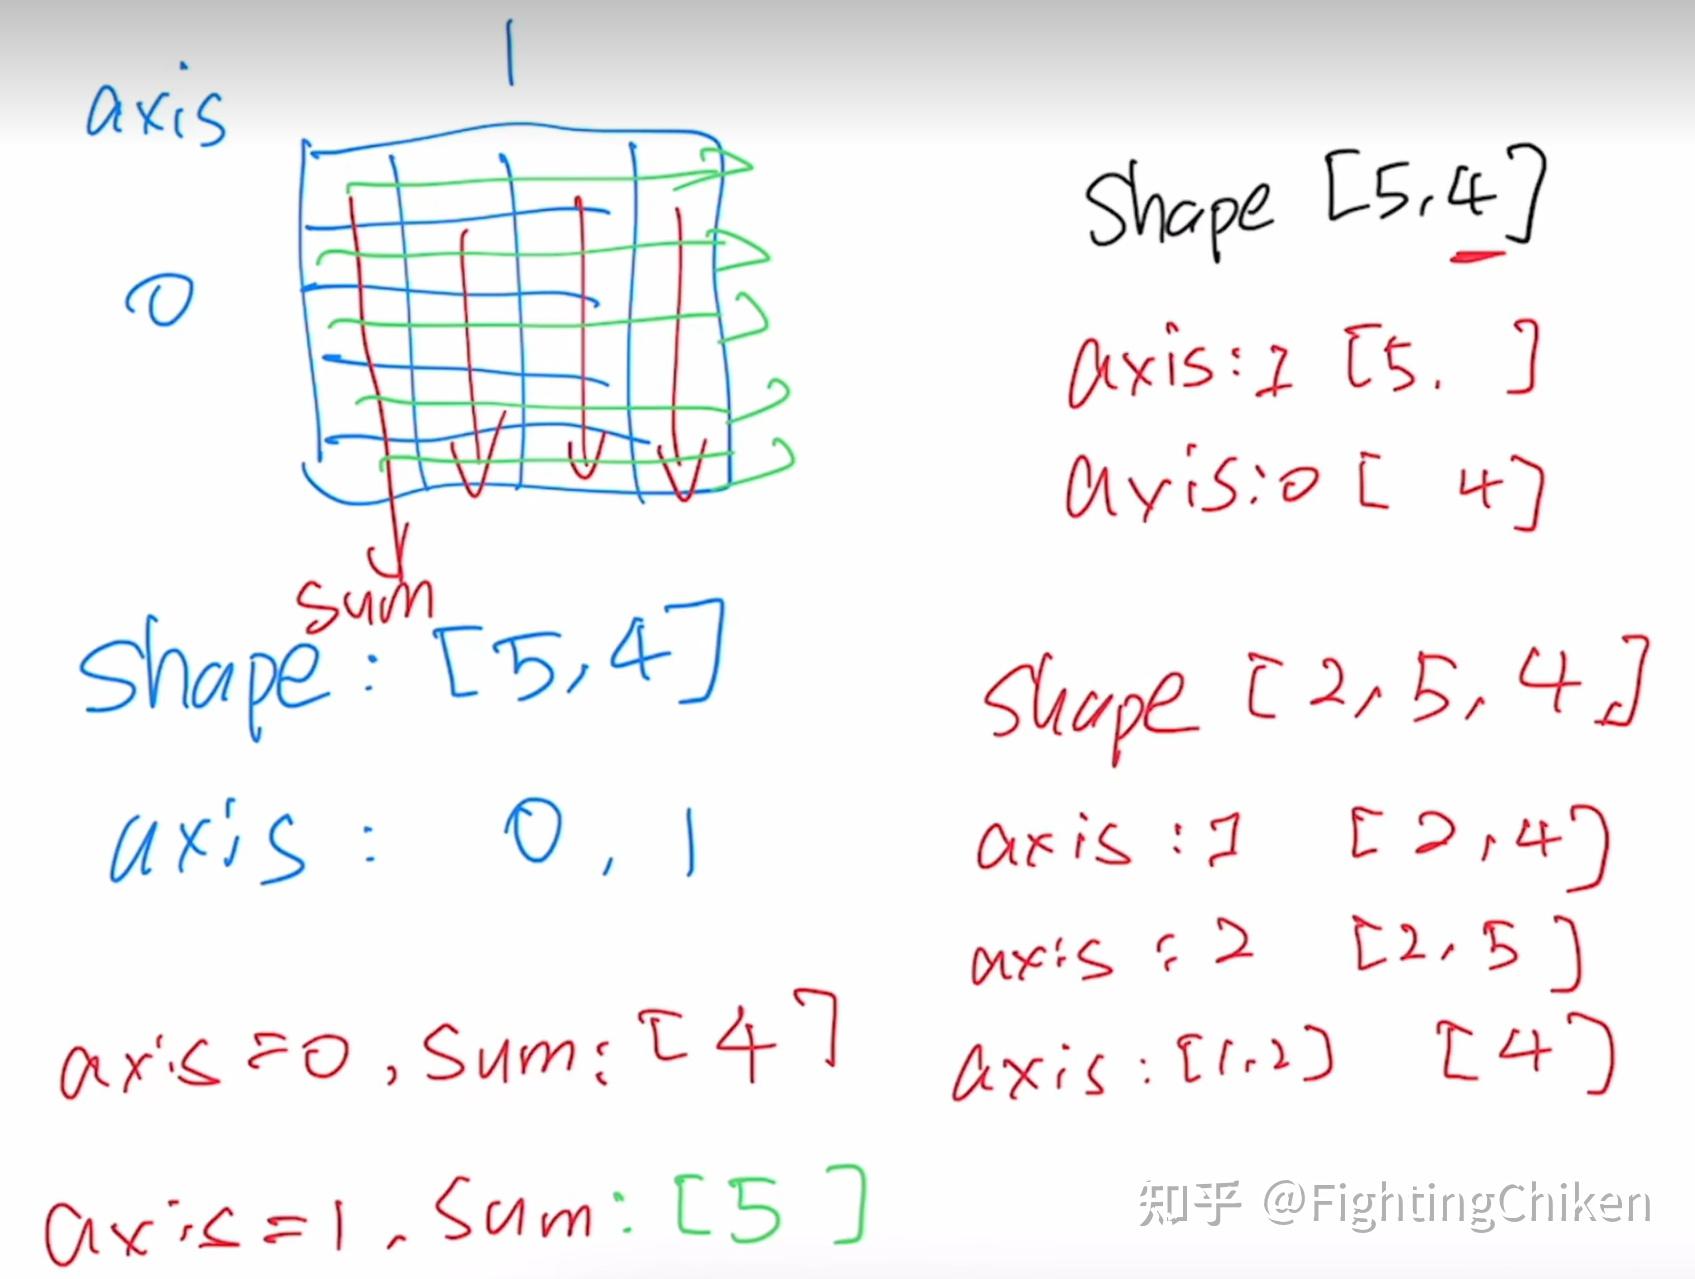 axis
1
0
sum
shape : [5,4]
axis : 0 , 1
axis=0 , Sum: [4]
axis=1 , Sum: [5]
Shape [5,4]
axis:1 [5. ]
axis:0 [ 4]
shape [2,5,4,]
axis :1 [2,4]
axis : 2 [2,5]
axis : [1,2] [4]
知乎 @FightingChiken